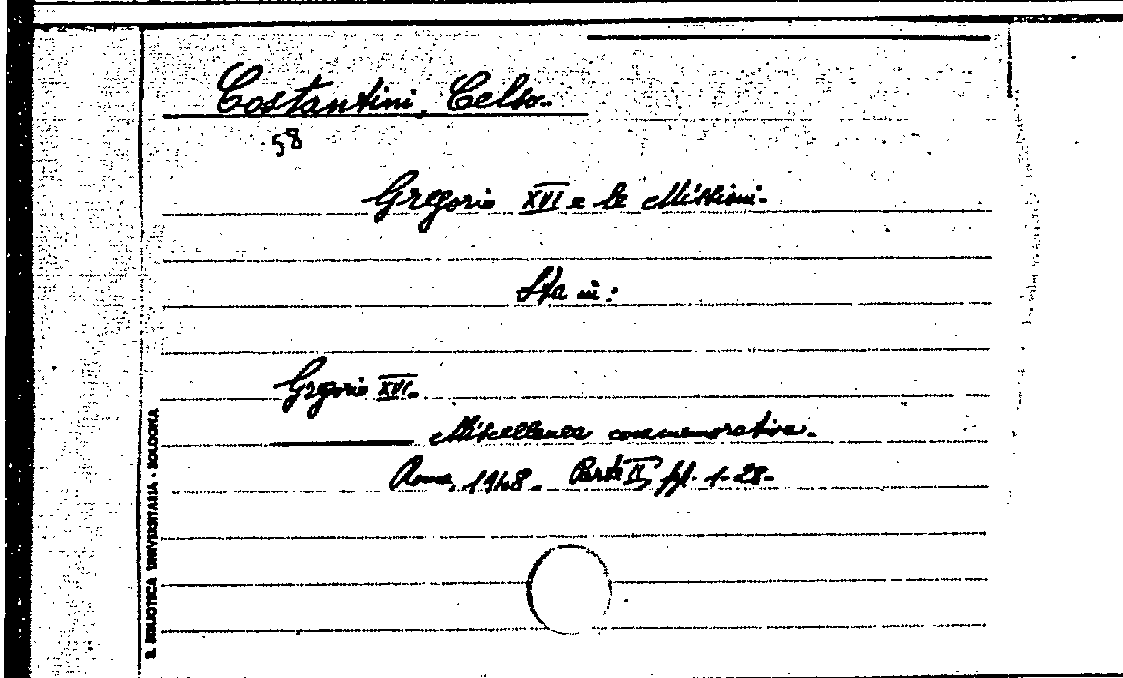 Costantini, Celso.
58
Gregorio XVI e le Missioni.
Sta in:
Gregorio XVI.
Miscellanea commemorativa.
Roma, 1948. Parte II, pp. 1-28.
B. BIBLIOTECA UNIVERSITARIA - BOLOGNA